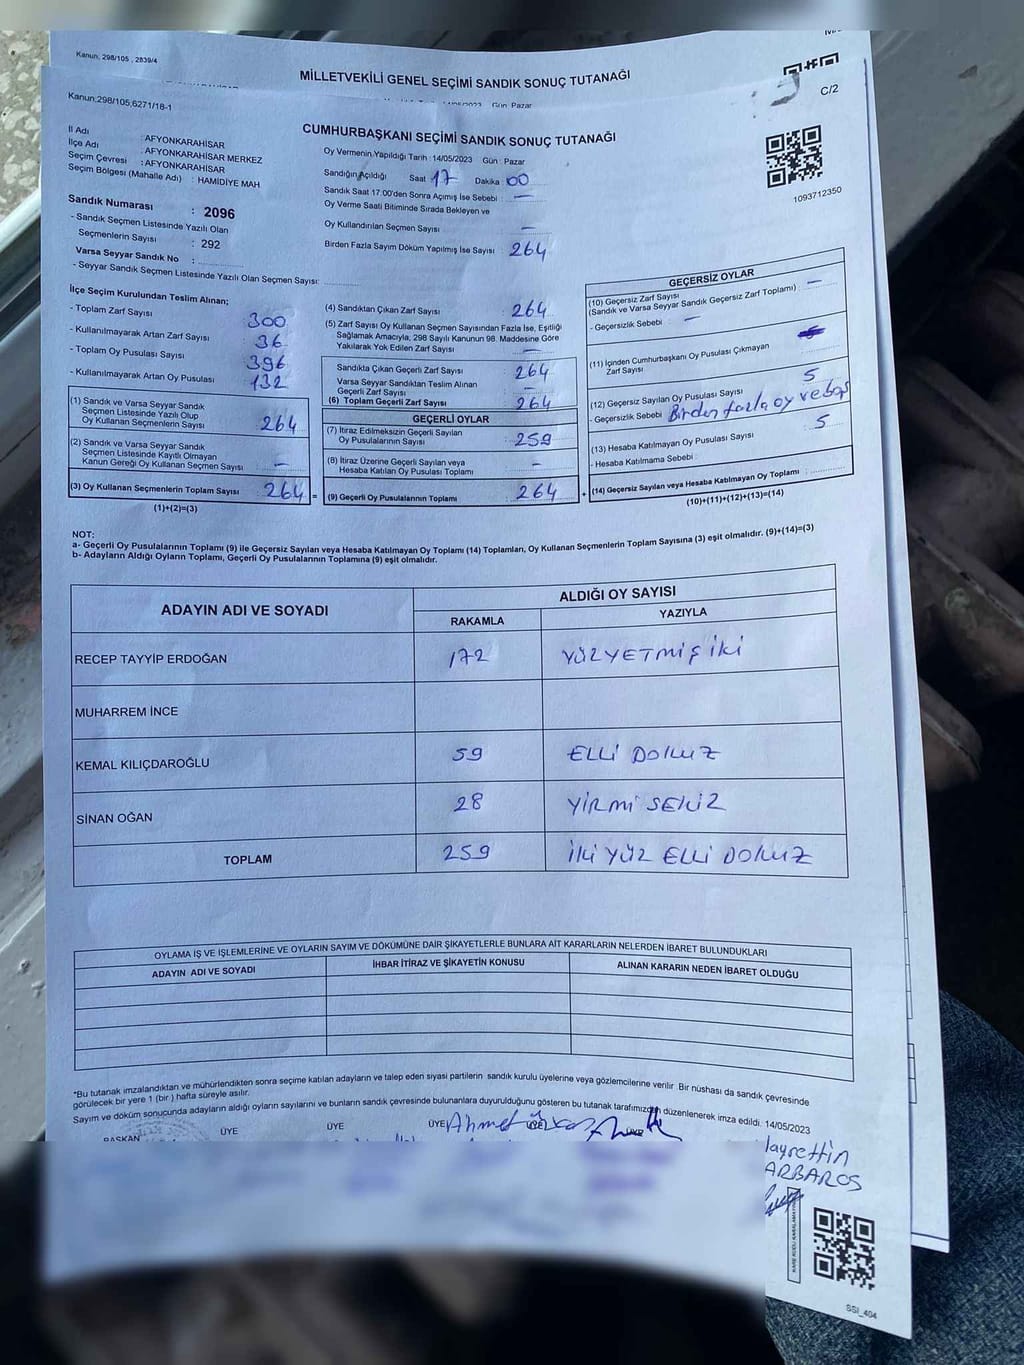 Kanun, 298/105 , 2839/4
MİLLETVEKİLİ GENEL SEÇİMİ SANDIK SONUÇ TUTANAĞI
Gün Pazar
C/2
Kanun,298/105,6271/18-1
CUMHURBAŞKANI SEÇİMİ SANDIK SONUÇ TUTANAĞI
İl Adı : AFYONKARAHİSAR
İlçe Adı : AFYONKARAHİSAR MERKEZ
Seçim Çevresi : AFYONKARAHİSAR
Seçim Bölgesi (Mahalle Adı) : HAMİDİYE MAH
Oy Vermenin Yapıldığı Tarih : 14/05/2023 Gün : Pazar
Sandığın Açıldığı Saat 17 Dakika 00
Sandık Saat 17.00'den Sonra Açılmış İse Sebebi : —
Oy Verme Saati Bitiminde Sırada Bekleyen ve
Oy Kullandırılan Seçmen Sayısı —
Birden Fazla Sayım Döküm Yapılmış İse Sayısı : 264
1093712350
Sandık Numarası : 2096
- Sandık Seçmen Listesinde Yazılı Olan
Seçmenlerin Sayısı : 292
Varsa Seyyar Sandık No :
- Seyyar Sandık Seçmen Listesinde Yazılı Olan Seçmen Sayısı:
İlçe Seçim Kurulundan Teslim Alınan;
- Toplam Zarf Sayısı 300
- Kullanılmayarak Artan Zarf Sayısı 36
- Toplam Oy Pusulası Sayısı 396
- Kullanılmayarak Artan Oy Pusulası 132
(1) Sandık ve Varsa Seyyar Sandık
Seçmen Listesinde Yazılı Olup
Oy Kullanan Seçmenlerin Sayısı 264
(2) Sandık ve Varsa Seyyar Sandık
Seçmen Listesinde Kayıtlı Olmayan
Kanun Gereği Oy Kullanan Seçmen Sayısı —
(3) Oy Kullanan Seçmenlerin Toplam Sayısı 264 =
(1)+(2)=(3)
(4) Sandıktan Çıkan Zarf Sayısı 264
(5) Zarf Sayısı Oy Kullanan Seçmen Sayısından Fazla İse, Eşitliği
Sağlamak Amacıyla, 298 Sayılı Kanunun 98. Maddesine Göre
Yakılarak Yok Edilen Zarf Sayısı —
Sandıkta Çıkan Geçerli Zarf Sayısı 264
Varsa Seyyar Sandıktan Teslim Alınan
Geçerli Zarf Sayısı —
(6) Toplam Geçerli Zarf Sayısı 264
GEÇERLİ OYLAR
(7) İtiraz Edilmeksizin Geçerli Sayılan
Oy Pusulalarının Sayısı : 259
(8) İtiraz Üzerine Geçerli Sayılan veya
Hesaba Katılan Oy Pusulası Toplamı —
(9) Geçerli Oy Pusulalarının Toplamı 264 +
GEÇERSİZ OYLAR
(10) Geçersiz Zarf Sayısı
(Sandık ve Varsa Seyyar Sandık Geçersiz Zarf Toplamı) : —
- Geçersizlik Sebebi : —
(11) İçinden Cumhurbaşkanı Oy Pusulası Çıkmayan
Zarf Sayısı
(12) Geçersiz Sayılan Oy Pusulası Sayısı 5
- Geçersizlik Sebebi Birden fazla oy ve boş
(13) Hesaba Katılmayan Oy Pusulası Sayısı 5
- Hesaba Katılmama Sebebi :
(14) Geçersiz Sayılan veya Hesaba Katılmayan Oy Toplamı :
(10)+(11)+(12)+(13)=(14)
NOT:
a- Geçerli Oy Pusulalarının Toplamı (9) ile Geçersiz Sayılan veya Hesaba Katılmayan Oy Toplamı (14) Toplamları, Oy Kullanan Seçmenlerin Toplam Sayısına (3) eşit olmalıdır. (9)+(14)=(3)
b- Adayların Aldığı Oyların Toplamı, Geçerli Oy Pusulalarının Toplamına (9) eşit olmalıdır.
ADAYIN ADI VE SOYADI
ALDIĞI OY SAYISI
RAKAMLA YAZIYLA
RECEP TAYYİP ERDOĞAN 172 YÜZYETMİŞ İKİ
MUHARREM İNCE
KEMAL KILIÇDAROĞLU 59 ELLİ DOKUZ
SİNAN OĞAN 28 YİRMİ SEKİZ
TOPLAM 259 İKİ YÜZ ELLİ DOKUZ
OYLAMA İŞ VE İŞLEMLERİNE VE OYLARIN SAYIM VE DÖKÜMÜNE DAİR ŞİKAYETLERLE BUNLARA AİT KARARLARIN NELERDEN İBARET BULUNDUKLARI
ADAYIN ADI VE SOYADI İHBAR İTİRAZ VE ŞİKAYETİN KONUSU ALINAN KARARIN NEDEN İBARET OLDUĞU
*Bu tutanak imzalandıktan ve mühürlendikten sonra seçime katılan adayların ve talep eden siyasi partilerin sandık kurulu üyelerine veya gözlemcilerine verilir Bir nüshası da sandık çevresinde
görülecek bir yere 1 (bir ) hafta süreyle asılır.
Sayım ve döküm sonucunda adayların aldığı oyların sayılarını ve bunların sandık çevresinde bulunanlara duyurulduğunu gösteren bu tutanak tarafımızdan düzenlenerek imza edildi. 14/05/2023
BAŞKAN ÜYE ÜYE ÜYE Ahmet ÜYE
ayrettin
ARBAROS
SSİ_404